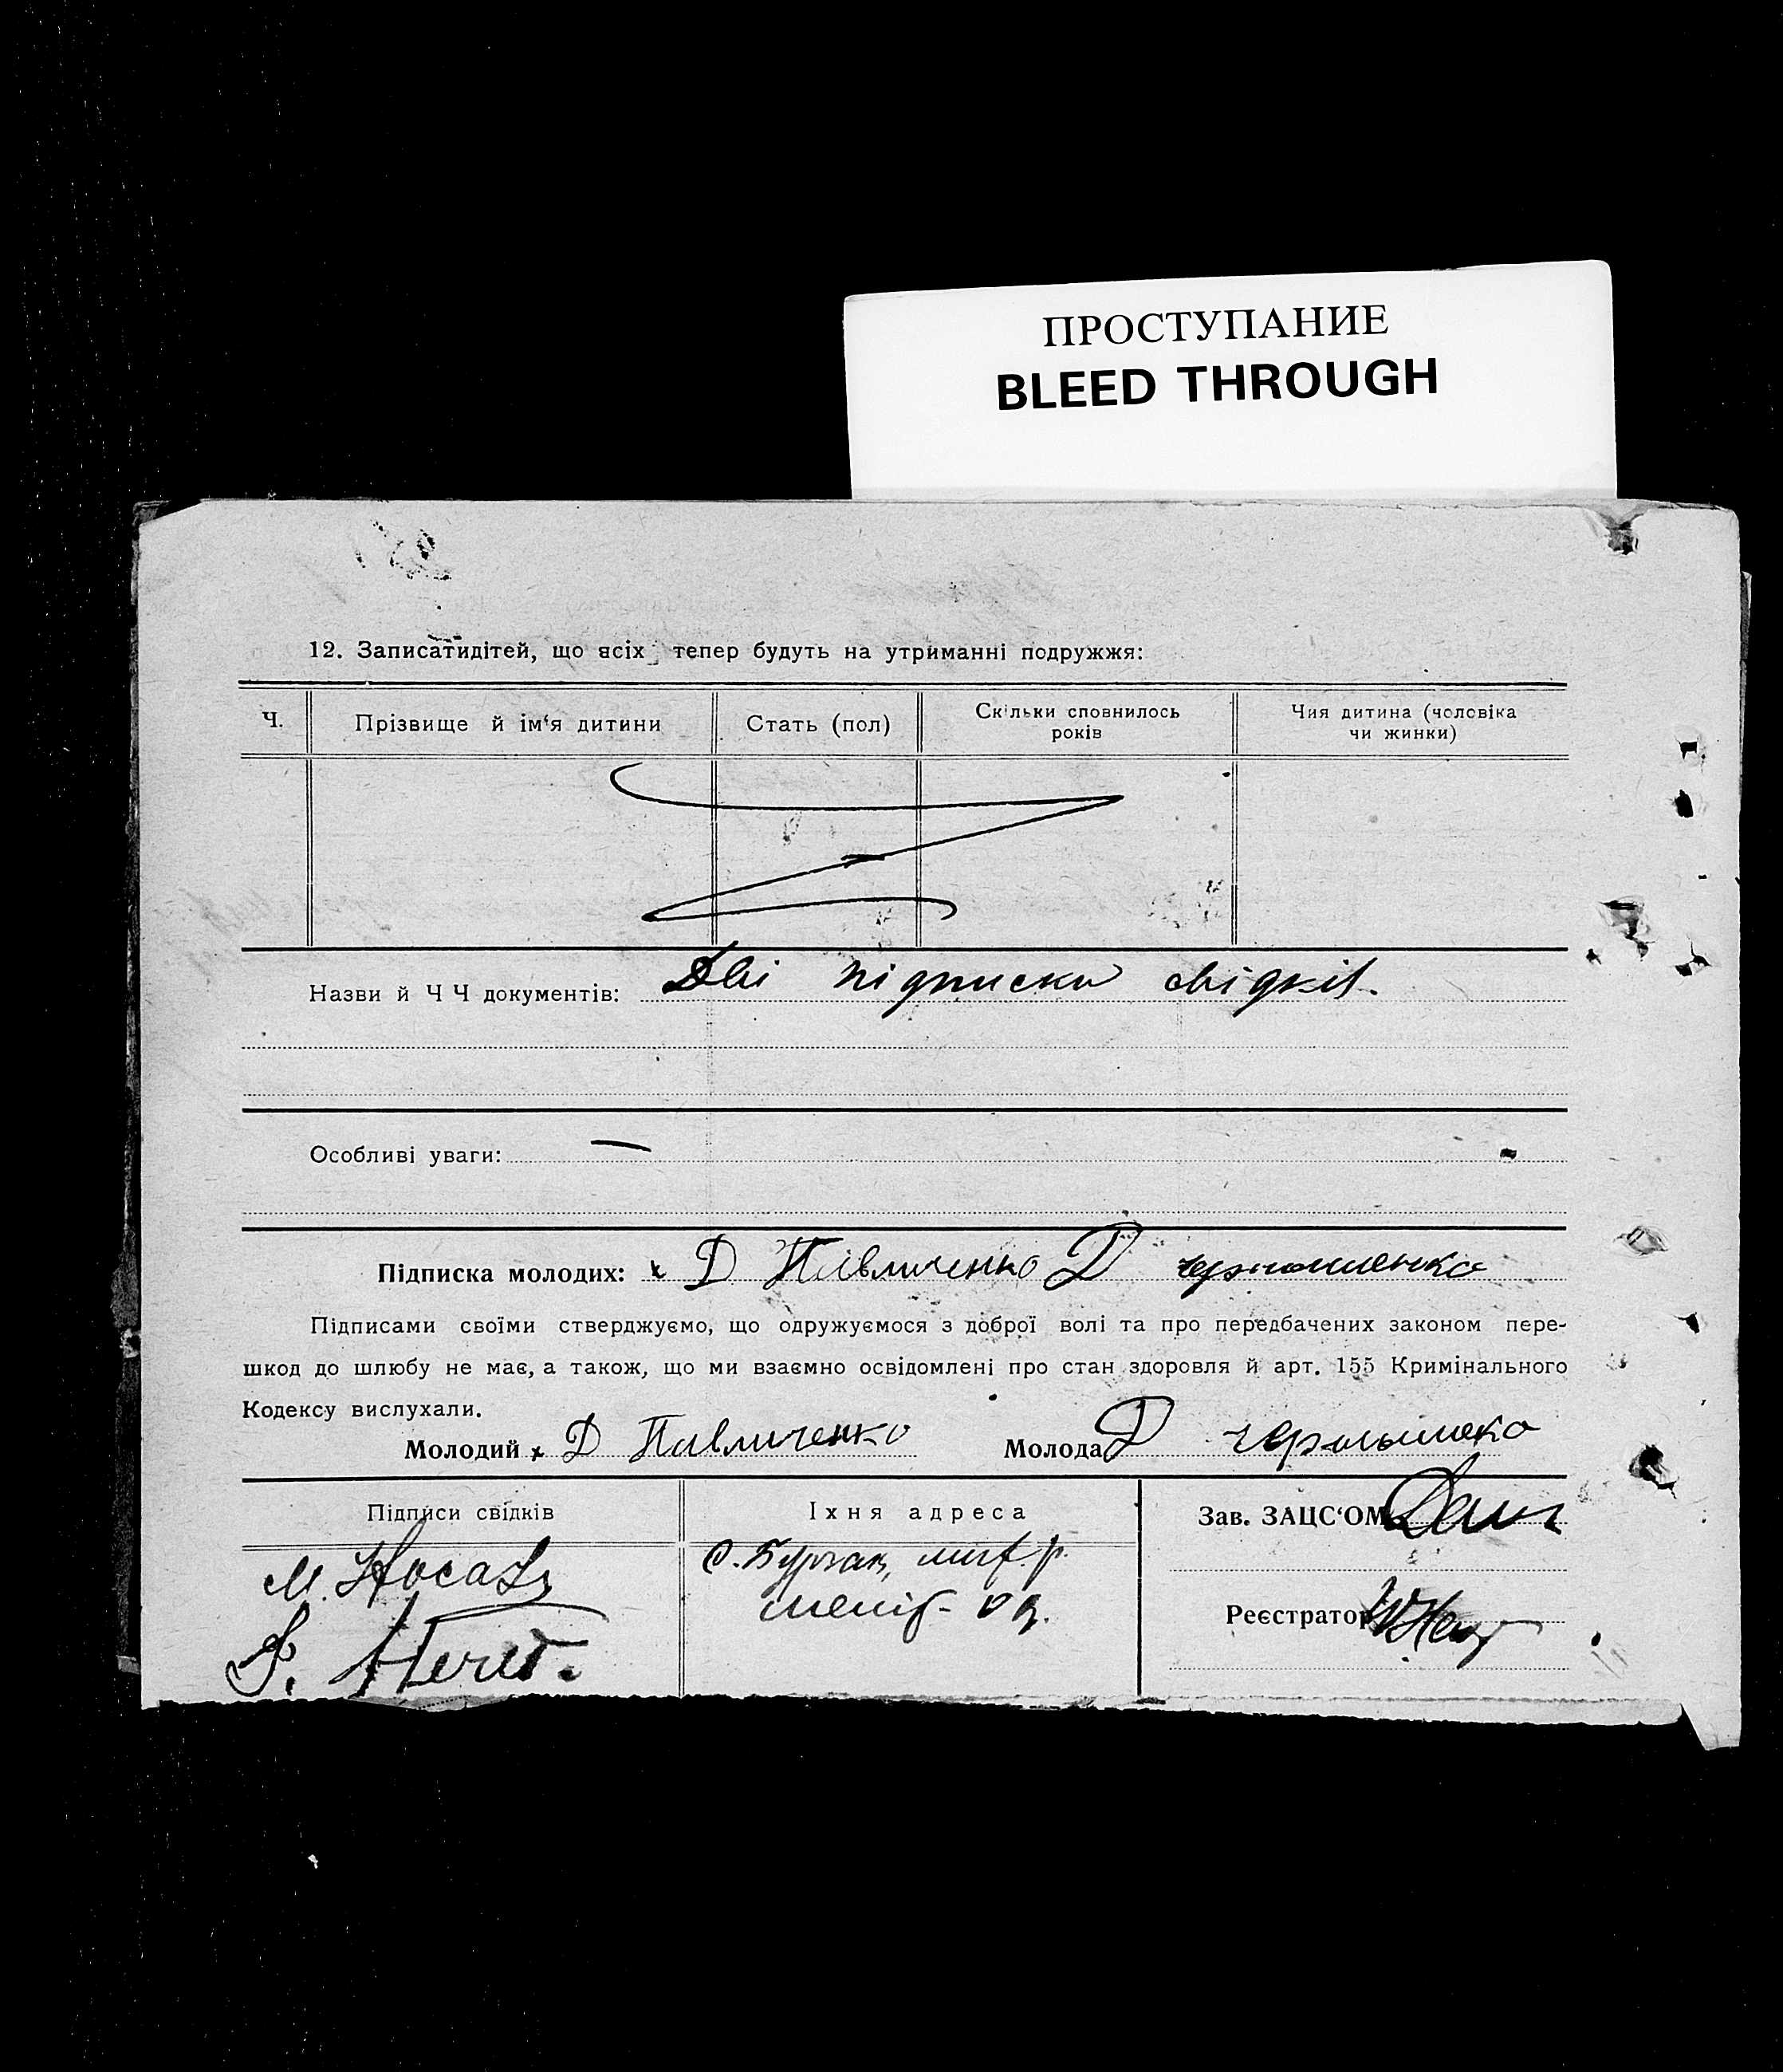 ПРОСТУПАНИЕ
BLEED THROUGH
12. Записатидітей, що всіх тепер будуть на утриманні подружжя:
Ч. Прізвище й ім‘я дитини Стать (пол) Скільки сповнилось років Чия дитина (чоловіка чи жинки)
Назви й Ч Ч документів: Дві підписки свідків.
Особливі уваги: —
Підписка молодих: х Д Павличенко Д
Підписами своїми стверджуємо, що одружуємося з доброї волі та про передбачених законом пере-
шкод до шлюбу не має, а також, що ми взаємно освідомлені про стан здоровля й арт. 155 Кримінального
Кодексу вислухали.
Молодий х Д Павличенко Молода Д
Підписи свідків Їхня адреса Зав. ЗАЦС‘ОМ
М. Носань с.
Реєстратор